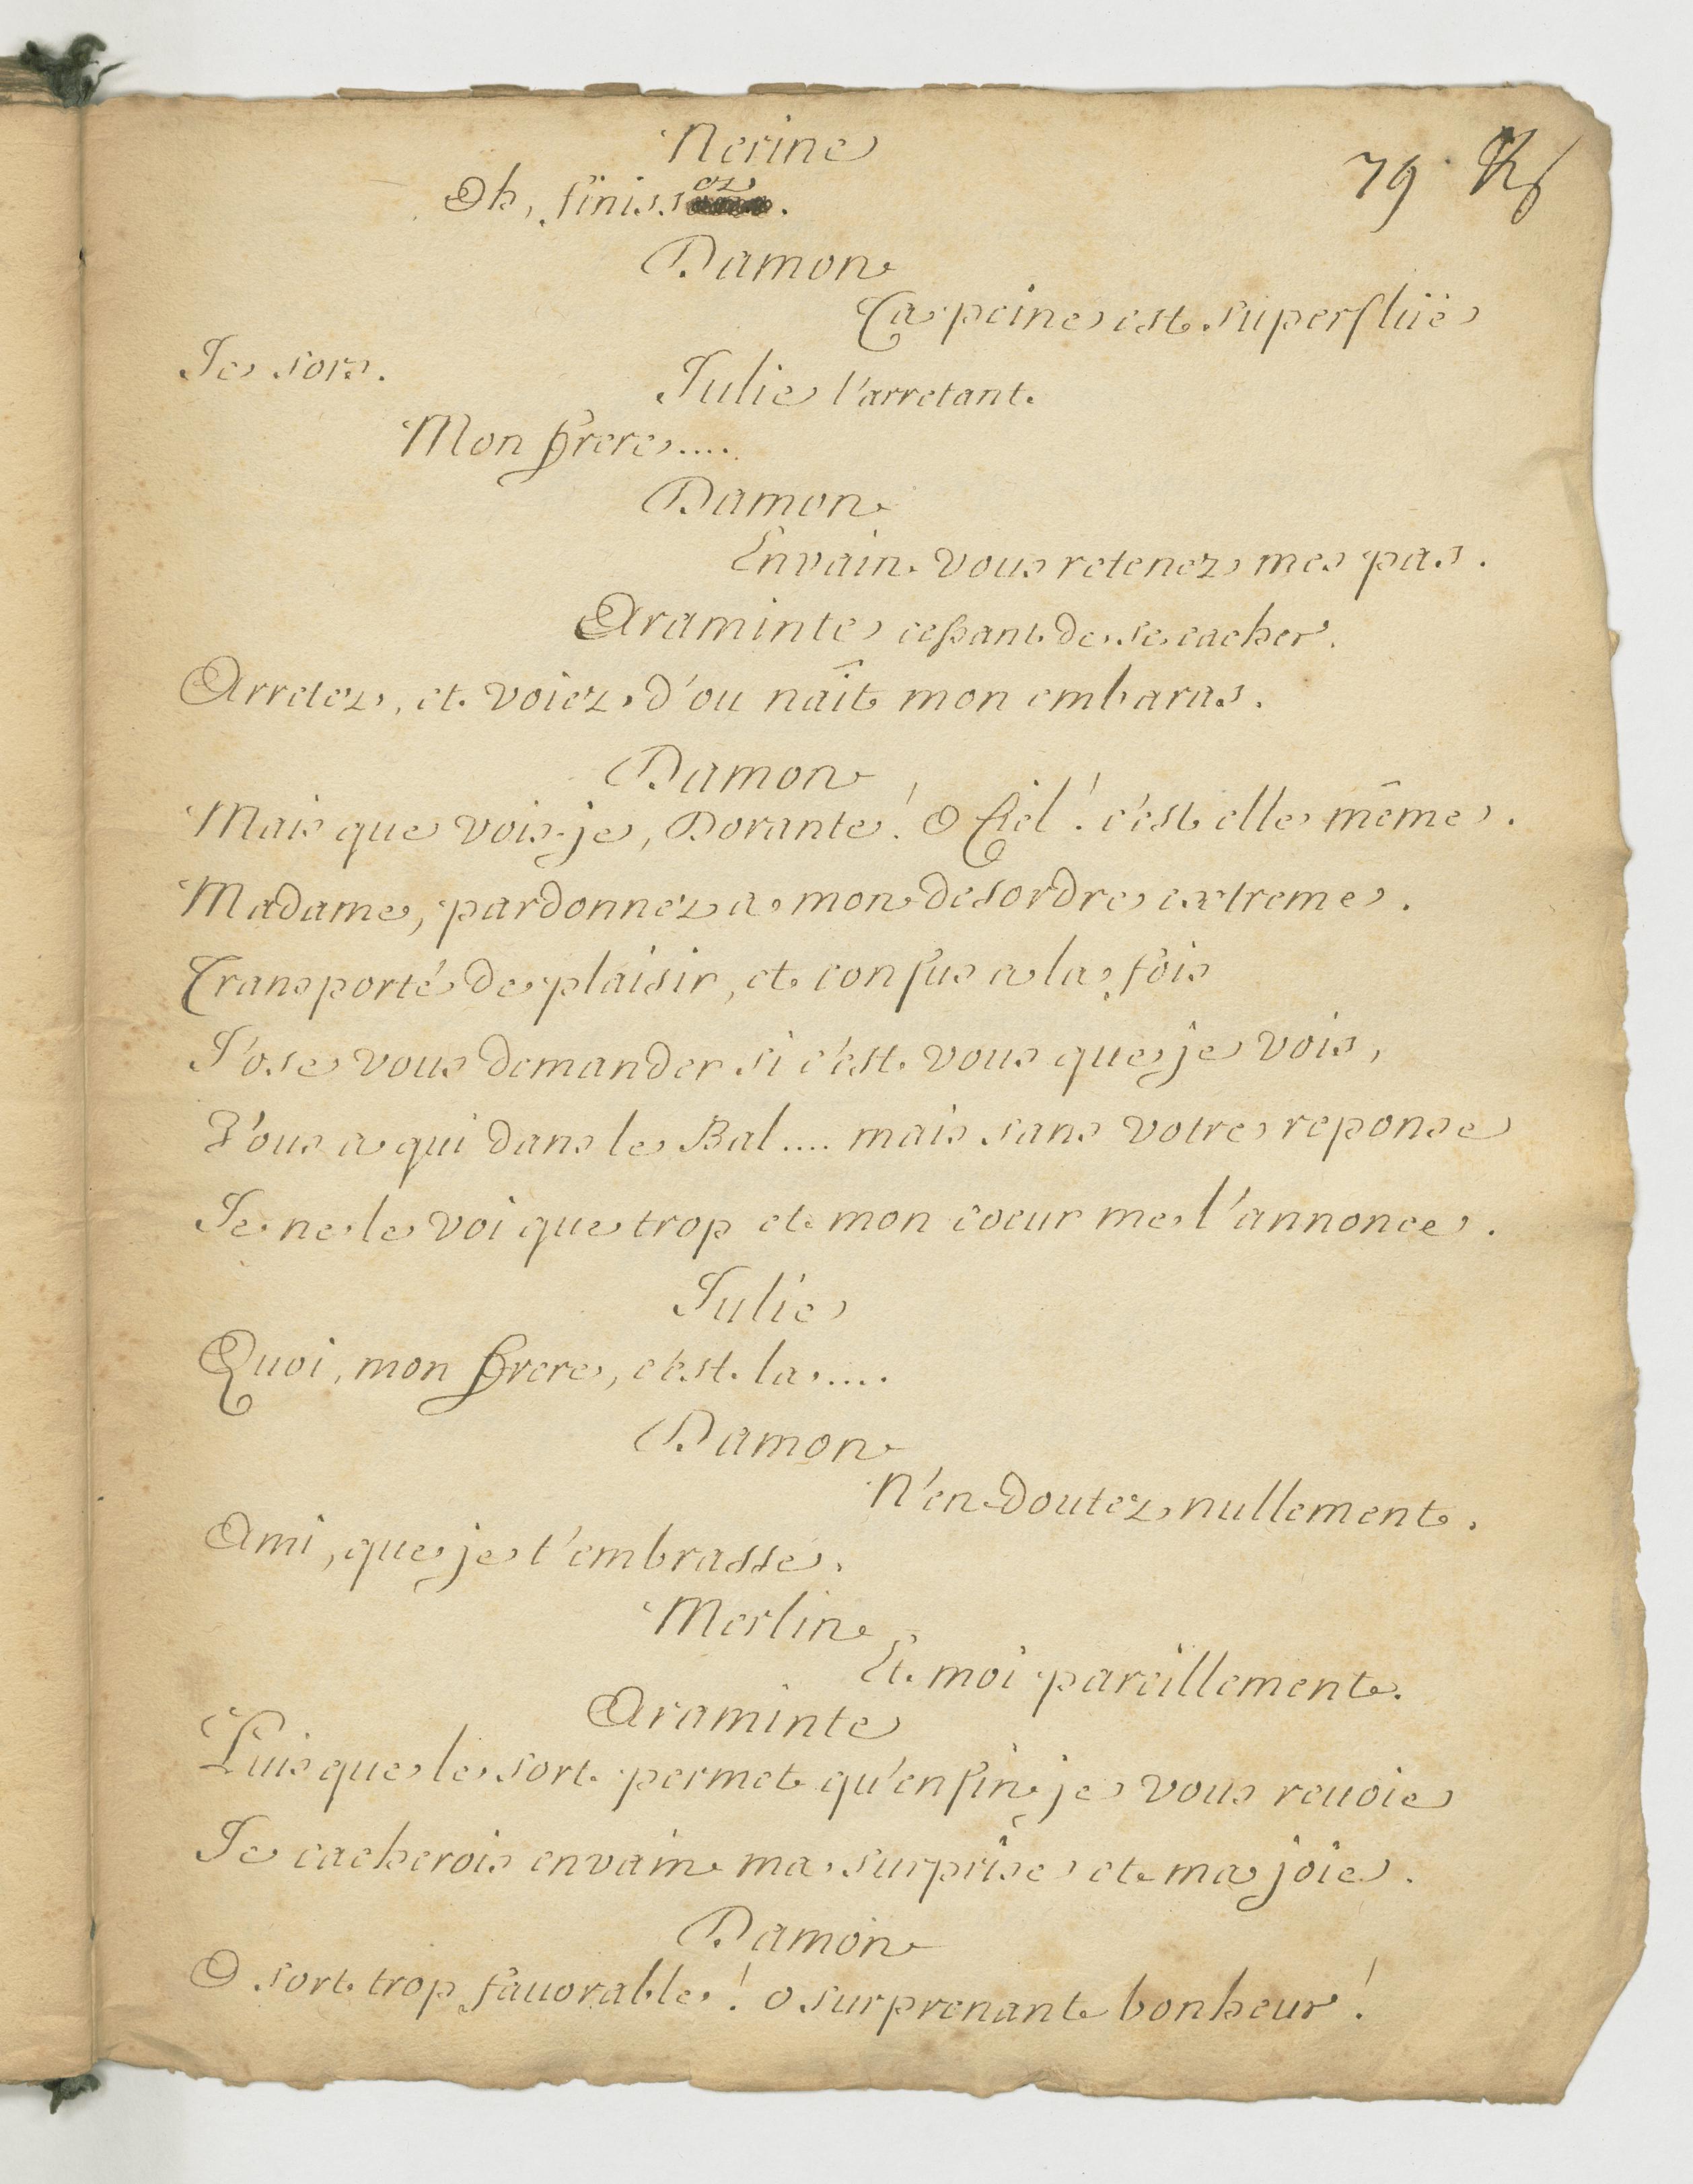 79.
Nerine
Oh, finissez.
Damon
Ta peine est superflüe
Je sors.
Julie l'arretant.
Mon frere....
Damon
Envain vous retenez mes pas.
Araminte cessant de se cacher.
Arretez, et voiez d'ou naît mon embaras.
Damon
Mais que vois-je, Dorante! O Ciel! c'est elle même.
Madame, pardonnez a mon desordre extreme.
Transporté de plaisir, et confus a la fois
J'ose vous demander si c'est vous que je vois,
Vous a qui dans le Bal.... mais sans votre reponse
Je ne le voi que trop et mon coeur me l'annonce.
Julie
Quoi, mon frere, c'est la....
Damon
N'en doutez nullement.
Ami, que je t'embrasse.
Merlin
Et moi pareillement.
Araminte
Puisque le sort permet qu'enfin je vous reuoie
Je cacherois envain ma surprise et ma joie.
Damon
O sort trop fauorable! o surprenant bonheur!